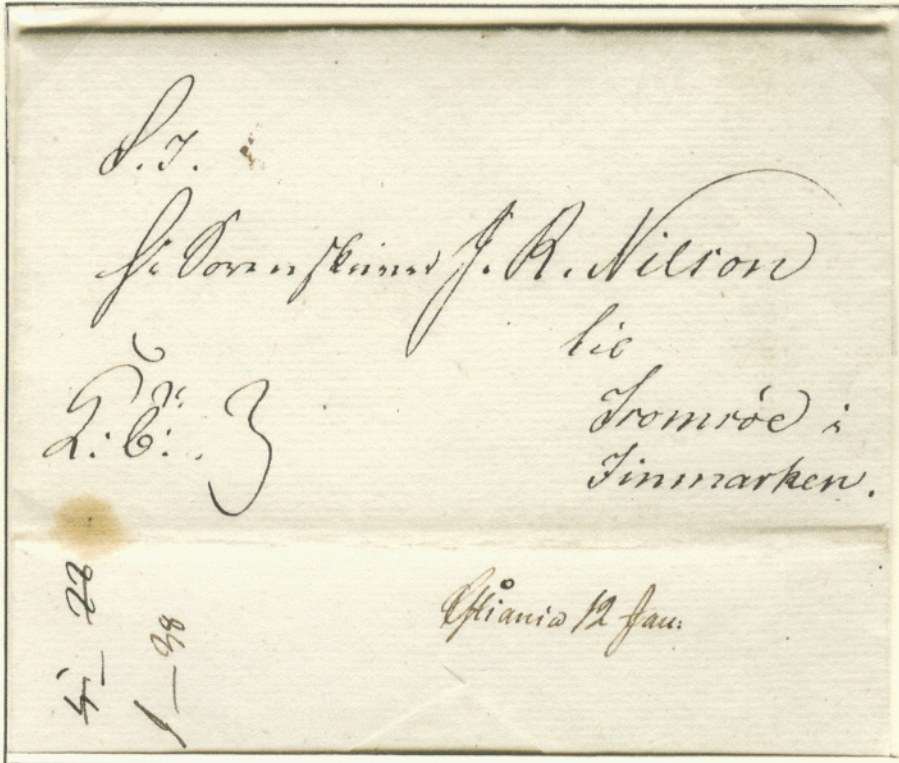 S. T.
Hr Sorenskriver J. R. Nilson
til
Tromsöe i
Finmarken.
3
Xstiania 12 Jan:
4 — 22
1 — 38